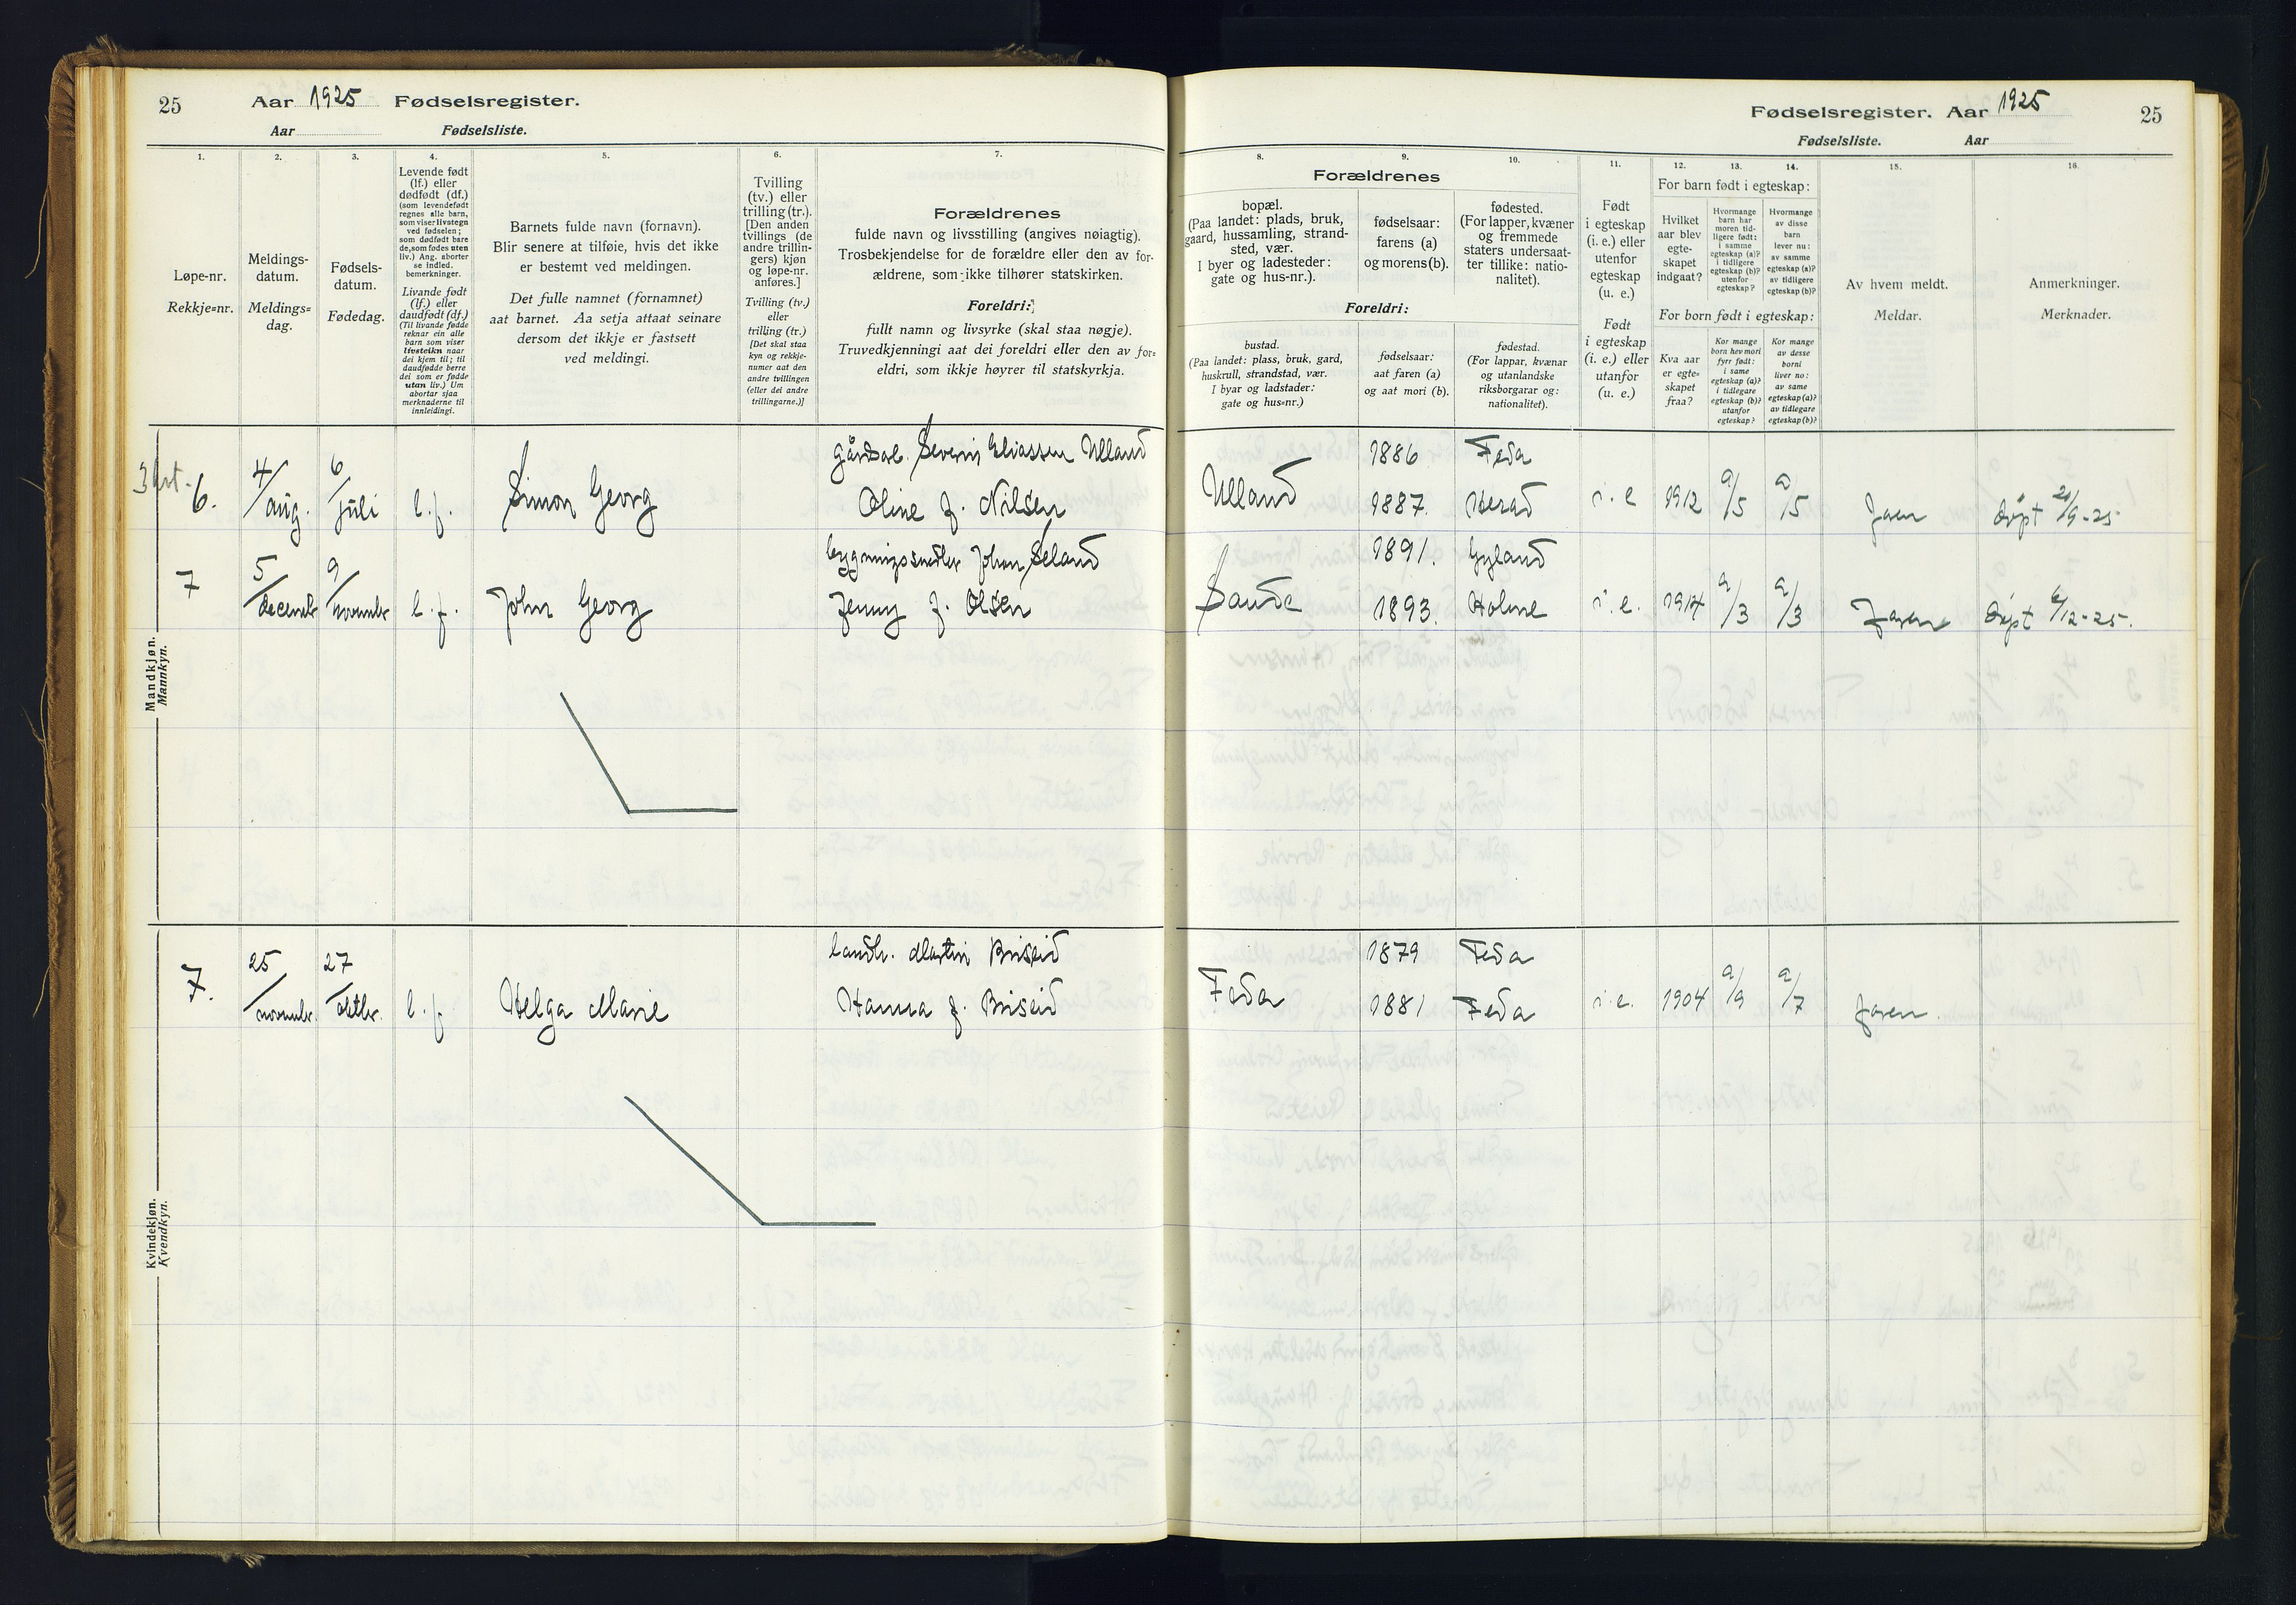 25 Aar 1925 Fødselsregister.
Aar Fødselsliste.
1.
Løpe-nr.
Rekkje=nr.
2.
Meldings-
datum.
Meldings=
dag.
3.
Fødsels-
datum.
Fødedag.
4.
Levende født
(lf.) eller
dødfødt (df.)
(som levendefødt
regnes alle barn,
som viser livstegn
ved fødselen;
som dødfødt bare
de, som fødes uten
liv.) Ang. aborter
se indled.
bemerkninger.
Livande født
(lf.) eller
daudfødt (df.)
(Til livande fødde
reknar ein alle
barn som viser
livsteikn naar
dei kjem til; til
daudfødde berre
dei som er fødde
utan liv.) Um
abortar sjaa
merknaderne til
innleidingi.
5.
Barnets fulde navn (fornavn).
Blir senere at tilføie, hvis det ikke
er bestemt ved meldingen.
Det fulle namnet (fornamnet)
aat barnet. Aa setja attaat seinare
dersom det ikkje er fastsett
ved meldingi.
6.
Tvilling
(tv.) eller
trilling (tr.).
[Den anden
tvillings (de
andre trillin-
gers) kjøn
og løpe-nr.
anføres.]
Tvilling (tv.)
eller
trilling (tr.)
[Det skal staa
kyn og rekkje-
numer aat den
andre tvillingen
(eller dei andre
trillingarne.)]
7.
Forældrenes
fulde navn og livsstilling (angives nøiagtig).
Trosbekjendelse for de forældre eller den av for-
ældrene, som ikke tilhører statskirken.
Foreldri:
fullt namn og livsyrke (skal staa nøgje).
Truvedkjenningi aat dei foreldri eller den av for=
eldri, som ikkje høyrer til statskyrkja.
Mandkjøn.
Mannkyn.
6. 4/aug. 6/juli l.f. Simon Georg
Severin Eliassen Ulland
Oline f. Nilsen
7 5/decembr 9/novembr l.f. John Georg
Johan Seland
Jenny f. Olsen
Kvindekjøn.
Kvendkyn.
7. 25/novembr. 27/oktbr. l.f. Helga Marie
landh. Martin Briseid
Hanna f. Briseid
Fødselsregister. Aar 1925 25
Fødselsliste. Aar
Forældrenes
8.
bopæl.
(Paa landet: plads, bruk,
gaard, hussamling, strand-
sted, vær.
I byer og ladesteder:
gate og hus-nr.).
9.
fødselsaar:
farens (a)
og morens (b).
10.
fødested.
(For lapper, kvæner
og fremmede
staters undersaat-
ter tillike: natio-
nalitet).
Foreldri:
bustad.
(Paa landet: plass, bruk, gard,
huskrull, strandstad, vær.
I byar og ladstader:
gate og hus=nr.)
fødselsaar:
aat faren (a)
og aat mori (b).
fødestad.
(For lappar, kvænar
og utanlandske
riksborgarar og:
nationalitet).
11.
Født
i egteskap
(i. e.) eller
utenfor
egteskap
(u. e.)
Født
i egteskap
(i. e.) eller
utanfor
(u. e.)
12. 13. 14.
For barn født i egteskap:
Hvilket
aar blev
egte-
skapet
indgaat?
Hvormange
barn har
moren tid-
ligere født:
i samme
egteskap (a)?
i tidligere
egteskap (b)?
utenfor
egteskap?
Hvormange
av disse
barn
lever nu:
av samme
egteskap (a)?
av tidligere
egteskap (b)?
For born født i egteskap:
Kva aar
er egte=
skapet
fraa?
Kor mange
born hev mori
fyrr født:
i same
egteskap (a)?
i tidlegare
egteskap (b)?
utanfor
egteskap?
Kor mange
av desse
borni
liver no:
av same
egteskap (a)?
av tidlegare
egteskap (b)?
15.
Av hvem meldt.
Meldar.
16.
Anmerkninger.
Merknader.
1886 Feda
Ulland 1887. Herad i.e 1912 a/5 a/5 Faren døpt 20/9-25
1891. Gyland
Sande 1893. Holme i.e. 1914 a/3 a/3 Faren døpt 6/12-25.
1879 Feda
Feda 1881 Feda i.e. 1904 a/9 a/7 Faren.